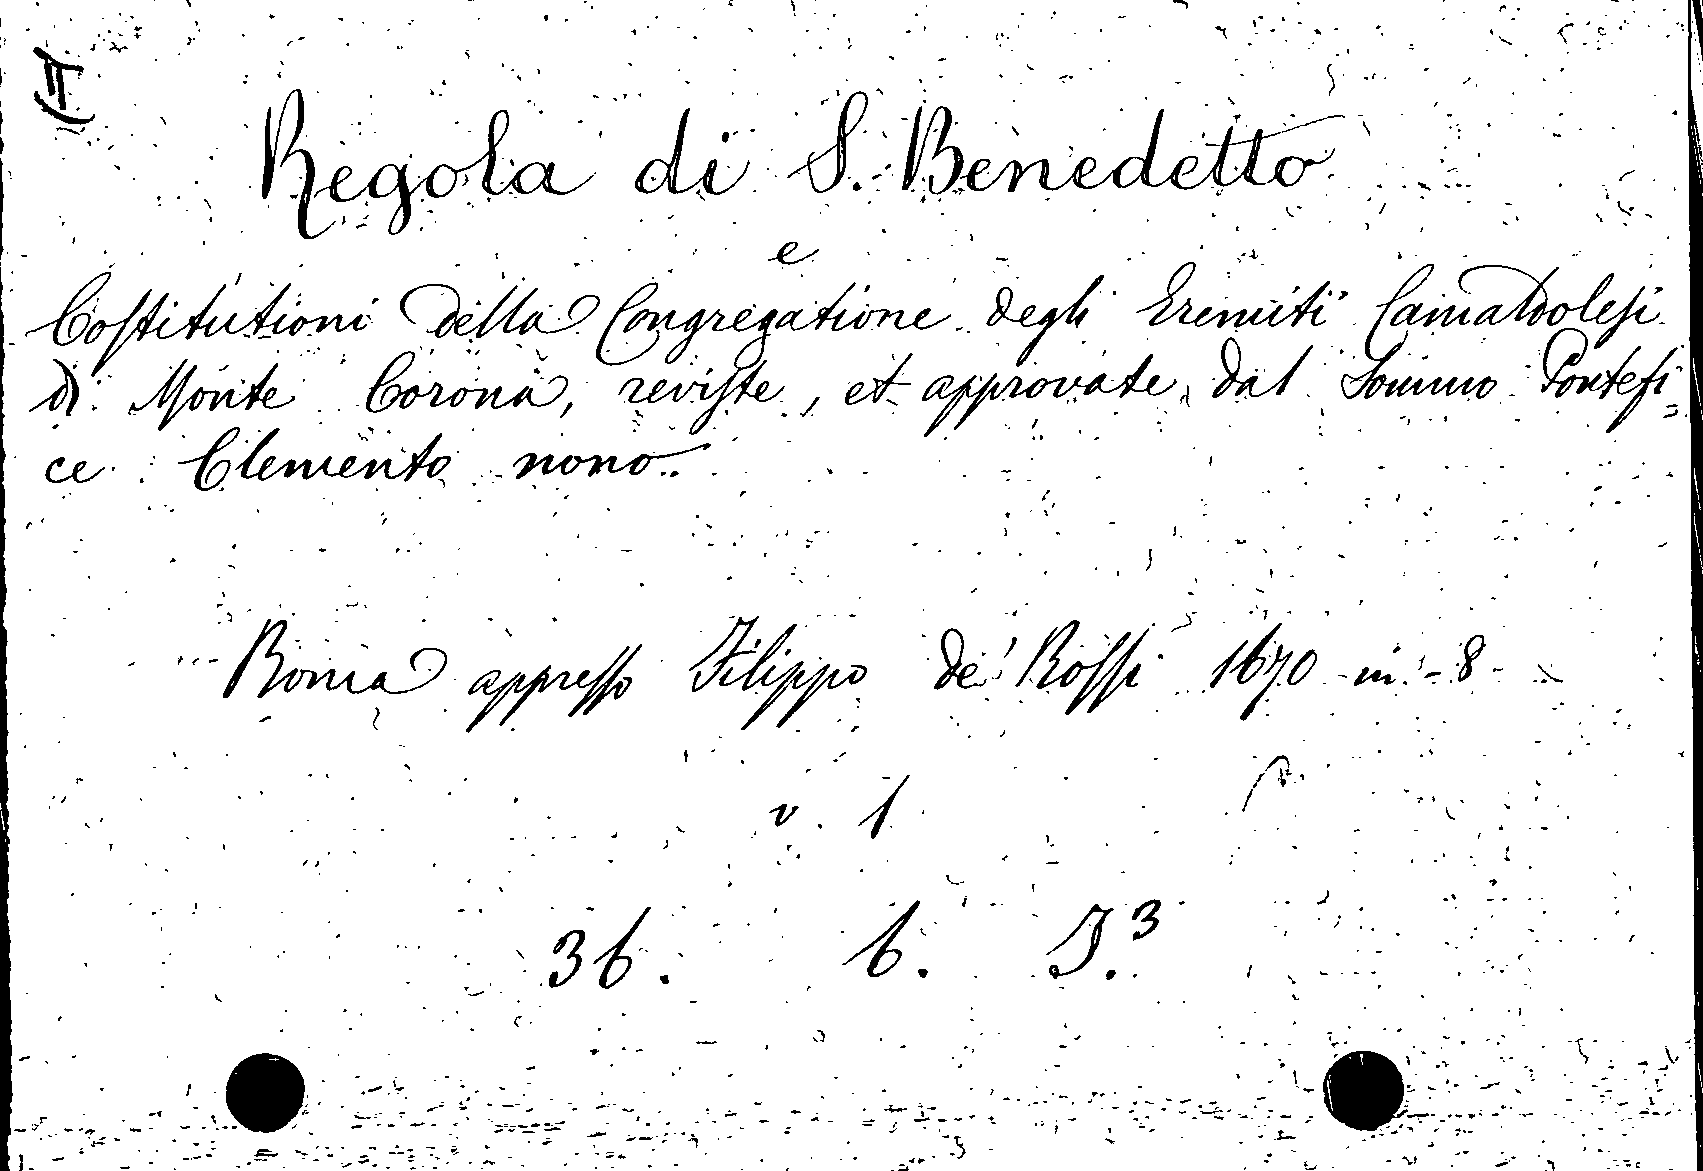 Regola di S. Benedetto
e
Costitutioni della Congregatione degli Eremiti Camaldolesi
di Monte Corona, reviste, et approvate dal Sommo Pontefi=
ce Clemento nono.
Roma appresso Filippo de' Rossi 1670 in-8
v. 1
36. 6. J.3